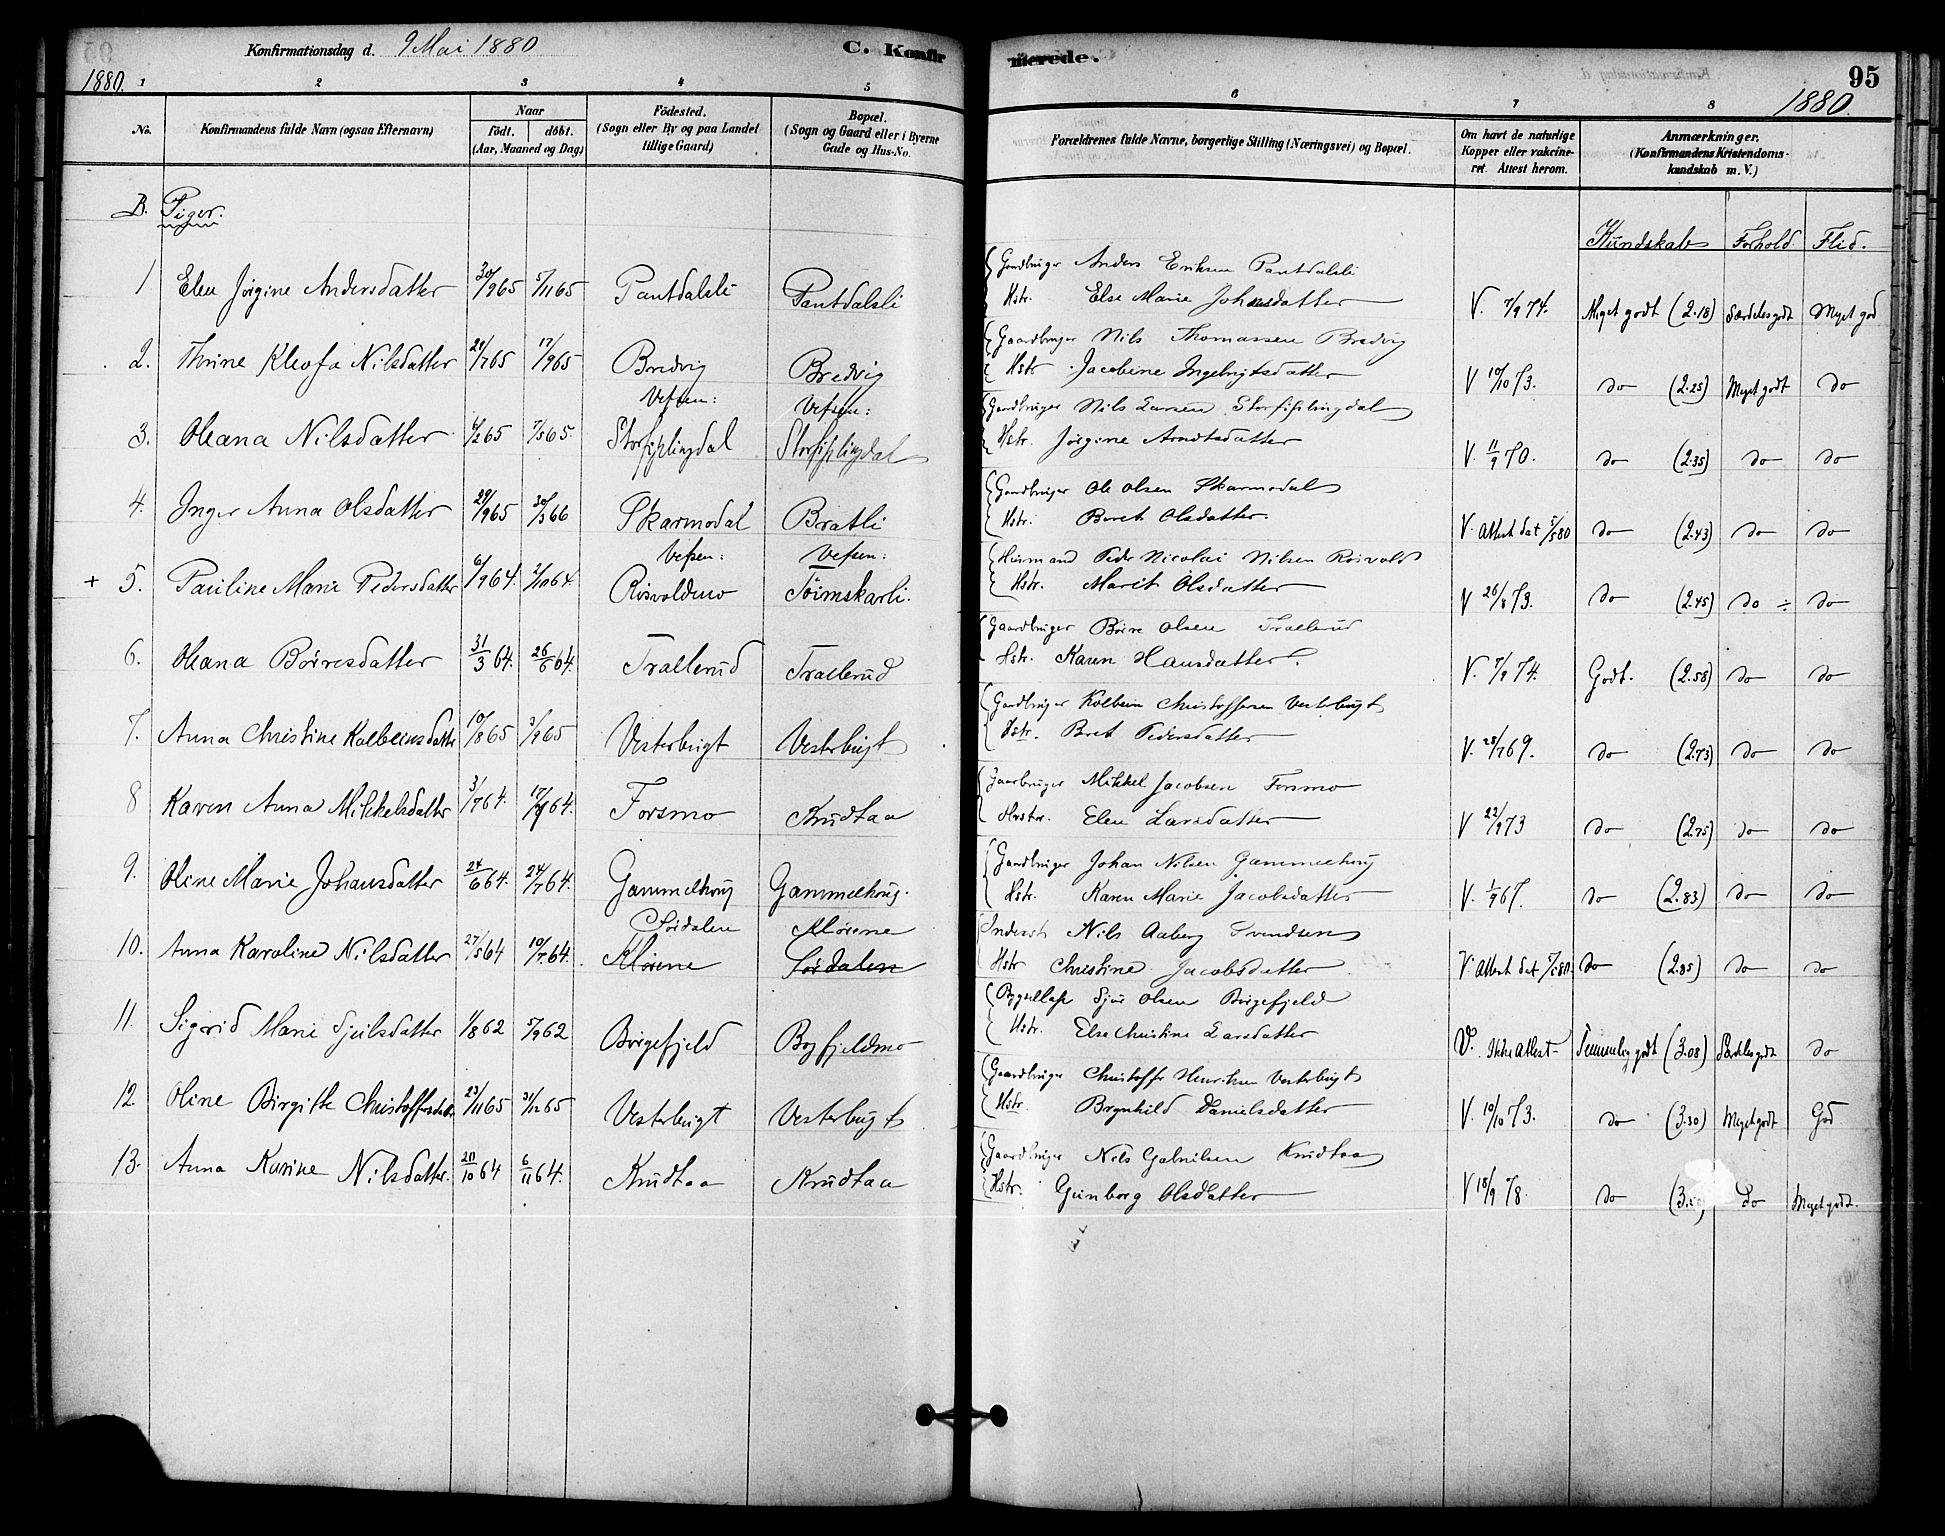 Konfirmationsdag d. 9 Mai 1880 C. Konfirmerede. 95
1880. 1880.
1 2 3 4 5 6 7 8
No. Konfirmandens fulde Navn (ogsaa Efternavn) Naar født. døbt. (Aar, Maaned og Dag) Fødested. (Sogn eller By og paa Landet tillige Gaard) Bopæl. (Sogn og Gaard eller i Byerne Gade og Hus-No. Forældrenes fulde Navne, borgerlige Stilling (Næringsvei) og Bopæl. Om havt de naturlige Kopper eller vakcineret. Attest herom. Anmærkninger. (Konfirmandens Kristendomskundskab m. V.)
B. Piger.
Kundskab Forhold Flid.
1 Elen Jørgine Andersdatter 30/9 65 5/11 65 Pantdalsli Pantdalsli Gaardbruger Anders Eriksen Pantdalsli
Hstr. Else Marie Johnsdatter V. 7/9 74. Meget godt (2.18) Særdeles godt Meget god
2. Thrine Kleofa Nilsdatter 21/7 65 17/9 65 Bredvig Bredvig Gaardbruger Nils Thomassen Bredvig
Hstr. Jacobine Ingebrigtsdatter V 10/10 73. do (2.25) Meget godt do
Vefsen: Vefsen:
3. Oleana Nilsdatter 4/2 65 7/5 65. Storfiplingdal Storfiplingdal Gaardbruger Nils Larsen Storfiplingdal
Hstr. Jørgine Arntsdatter V. 11/9 70. do (2.35) do do
4. Inger Anna Olsdatter 29/9 65 30/3 66 Skarmodal Bratli Gaardbruger Ole Olsen Skarmodal
Hstr. Beret Olsdatter. V. Attest dat 5/5 80 do (2.43) do do
Vefsen: Vefsen:
+ 5. Pauline Marie Pedersdatter 6/9 64. 2/10 64. Risvoldmo Tøimskarli. Huusmand Peder Nicolai Nilsen Risvold
Hstr. Marit Olsdatter V 26/8 73. do (2.45) do ÷ do
6. Oleana Børresdatter 31/3 64. 26/6 64. Trallerud Trallerud Gaardbruger Børre Olsen Trallerud
Hstr. Karen Hansdatter. V. 7/9 74. Godt. (2.58) do do
7. Anna Christine Kolbeinsdatter 10/8 65 3/9 65 Vesterbugt Vesterbugt Gaardbruger Kolbein Christoffersen Vesterbugt
Hstr. Bret Pedersdatter V. 25/7 69. do (2.73) do do
8 Karen Anna Mikkelsdatter 3/7 64. 17/9 64. Forsmo Knudtaa Gaardbruger Mikkel Jacobsen Forsmo
Hustr. Elen Larsdatter V 22/9 73 do (2.75) do do
9. Oline Marie Johansdatter 24/6 64. 24/7 64. Gammelhoug Gammelhoug. Gaardbruger Johan Nilsen Gammelhoug
Hstr. Karen Marie Jacobsdatter V. 1/9 67. do (2.83) do do
Sørdalen Mørene
10. Anna Karoline Nilsdatter 27/5 64 10/7 64. Mørene Sørdalen Inderst Nils Aaberg Svendsen
Hstr Christine Jacobsdatter V Attest dat 7/5 80. do (2.85) do do
11. Sigrid Marie Sjulsdatter 1/8 62 5/9 62 Børgefjeld Bogfjeldmo Sjul Olsen Børgefjeld
Hstr. Else Christine Larsdatter V. Ikke attest- Temmelig godt (3.08) Særdeles godt do
12 Oline Birgitte Christoffersdatter 23/11 65 31/12 65 Vesterbugt Vesterbugt Gaardbruger Christoffer Henriksen Vesterbugt
Hstr. Brynhild Danielsdatter V. 10/10 73. do (3.30) Meget godt God
13. Anna Karine Nilsdatter. 20/10 64 6/11 64. Knudtaa Knudtaa Gaardbruger Nils Gabrielsen Knudtaa
Hstr. Gunborg Olsdatter V 18/9 78 do do Meget godt.